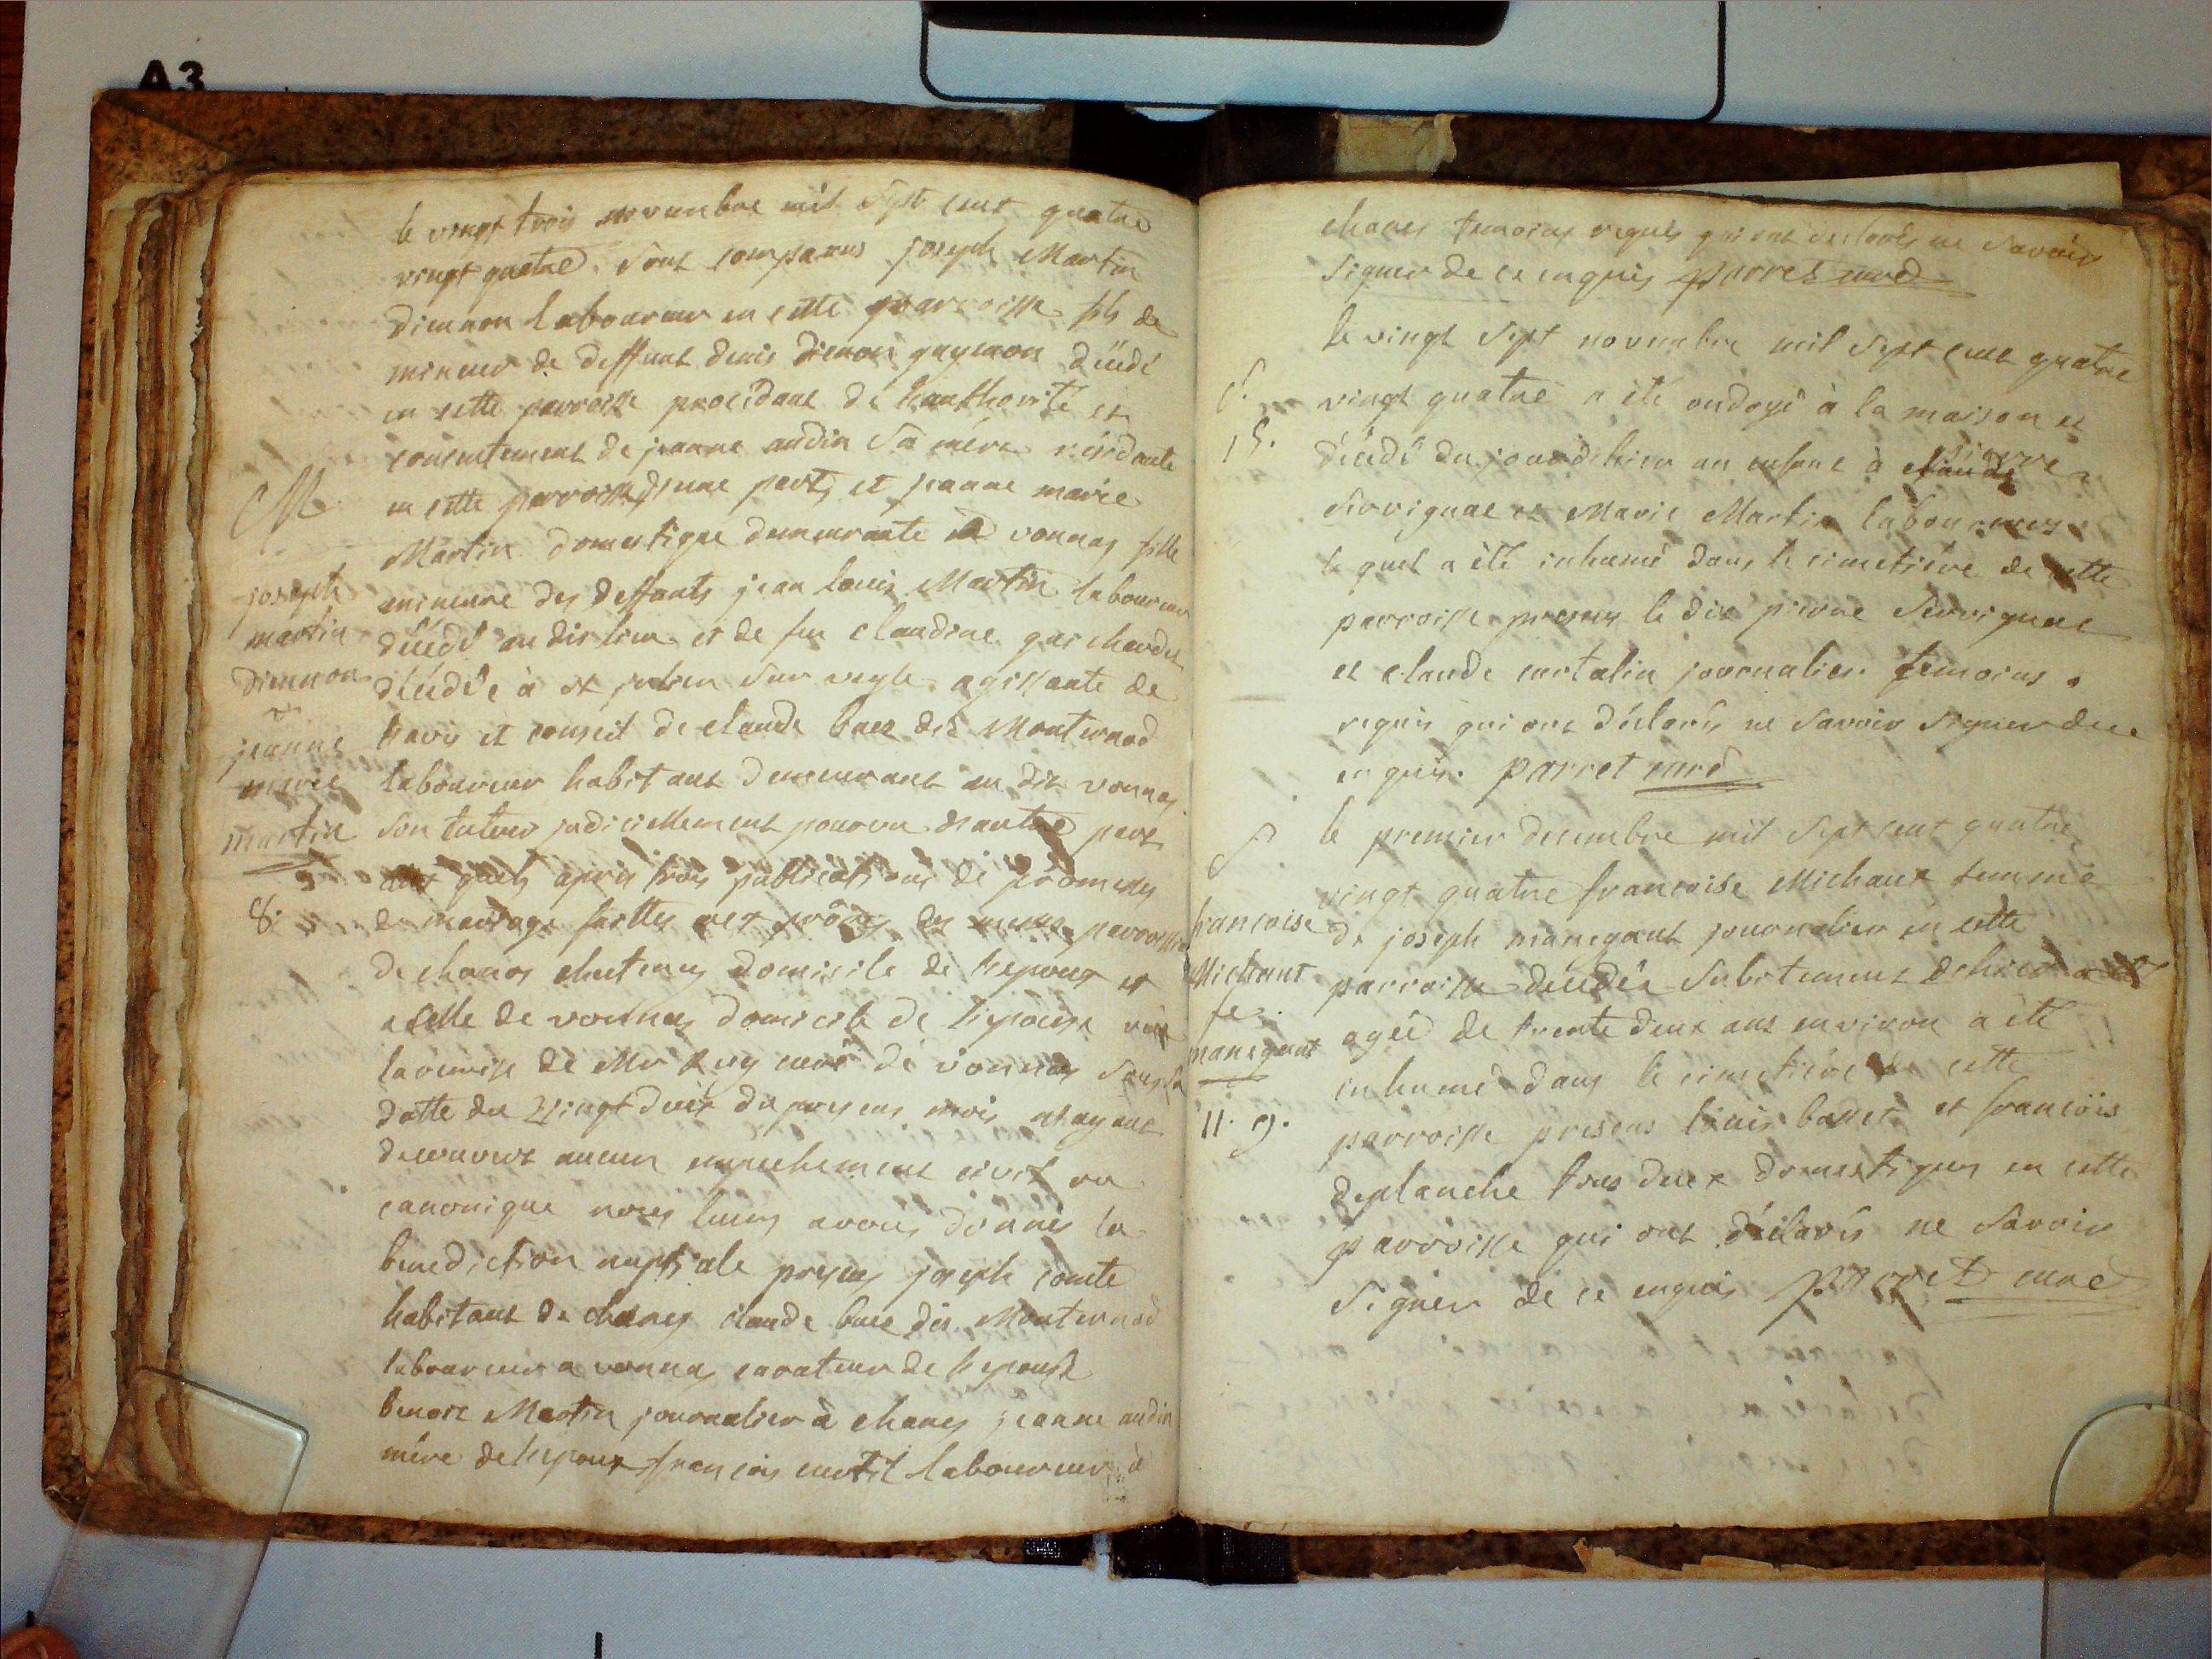 A3
le vingt trois novembre mil sept cent quatre
vingt quatre sont comparus joseph Martin
Diennon laboureur en cette parroisse fils de
mineur de deffunt denis diennon décédé
en cette parroisse procédant de lauthorité et
consentement de jeanne audin sa mère résidante
M
en cette parroisse d'une part, et jeanne marie
Martin domestique demeurante a vonnas fille
joseph
martin
Diennon
&
jeanne
marie
martin
8.
mineure des deffunts jean louis Martin laboureur
décédé au dis lieu et de feu claudine guichardet
décédée à st julien sur veyle agissante de
lavis et conseil de claude buez dis Monternod
laboureur habitant demeurant au dit vonnas
son tuteur judiciellement pourvu d'autre part
aux quels après trois publications de promesses
de mariage faittes aux prônes des messes parroissiales
de chanes domicile de lepoux et
a celle de vonnas domicile de lepouse vüe
la remise de Mr curé de vonnas sous la
datte du vingt deux du present mois nayant
decouvert aucun empechement civil ou
canonique nous leurs avons donnés la
benediction nuptiale presens joseph comte
habitant de chanes claude buez dis Monternod
laboureur a vonnas curateur de lepouse
benoit Martin journalier à chanes jeanne audin
mère de lepoux françois curtil laboureur à
chanes temoins requis qui ont déclarés ne savoir
signer de ce enquis parret curé
le vingt sept novembre mil sept cent quatre
S.
15.
vingt quatre a été ondoyé à la maison et
décédé du jour d'hier un enfant à claude pierre
Servignat et Marie Martin laboureurs
le quel a été inhumé dans le cimetière de cette
parroisse presens le dit pierre Servignat
et claude curtalin journalier temoins
requis qui ont déclarés ne savoir signer de ce
enquis. parret curé
S
le premier decembre mil sept cent quatre
vingt quatre françoise Michaux femme
francoise
Michaut
fe.
manegant
11. 9.
de joseph manegant journalier en cette
parroisse décédée subitement dhier
agée de trente deux ans environ a été
inhumé dans le cimetière de cette
parroisse presens louis basset et françois
deplanche tous deux domestiques en cette
parroisse qui ont déclarés ne savoir
signer de ce enquis parret curé